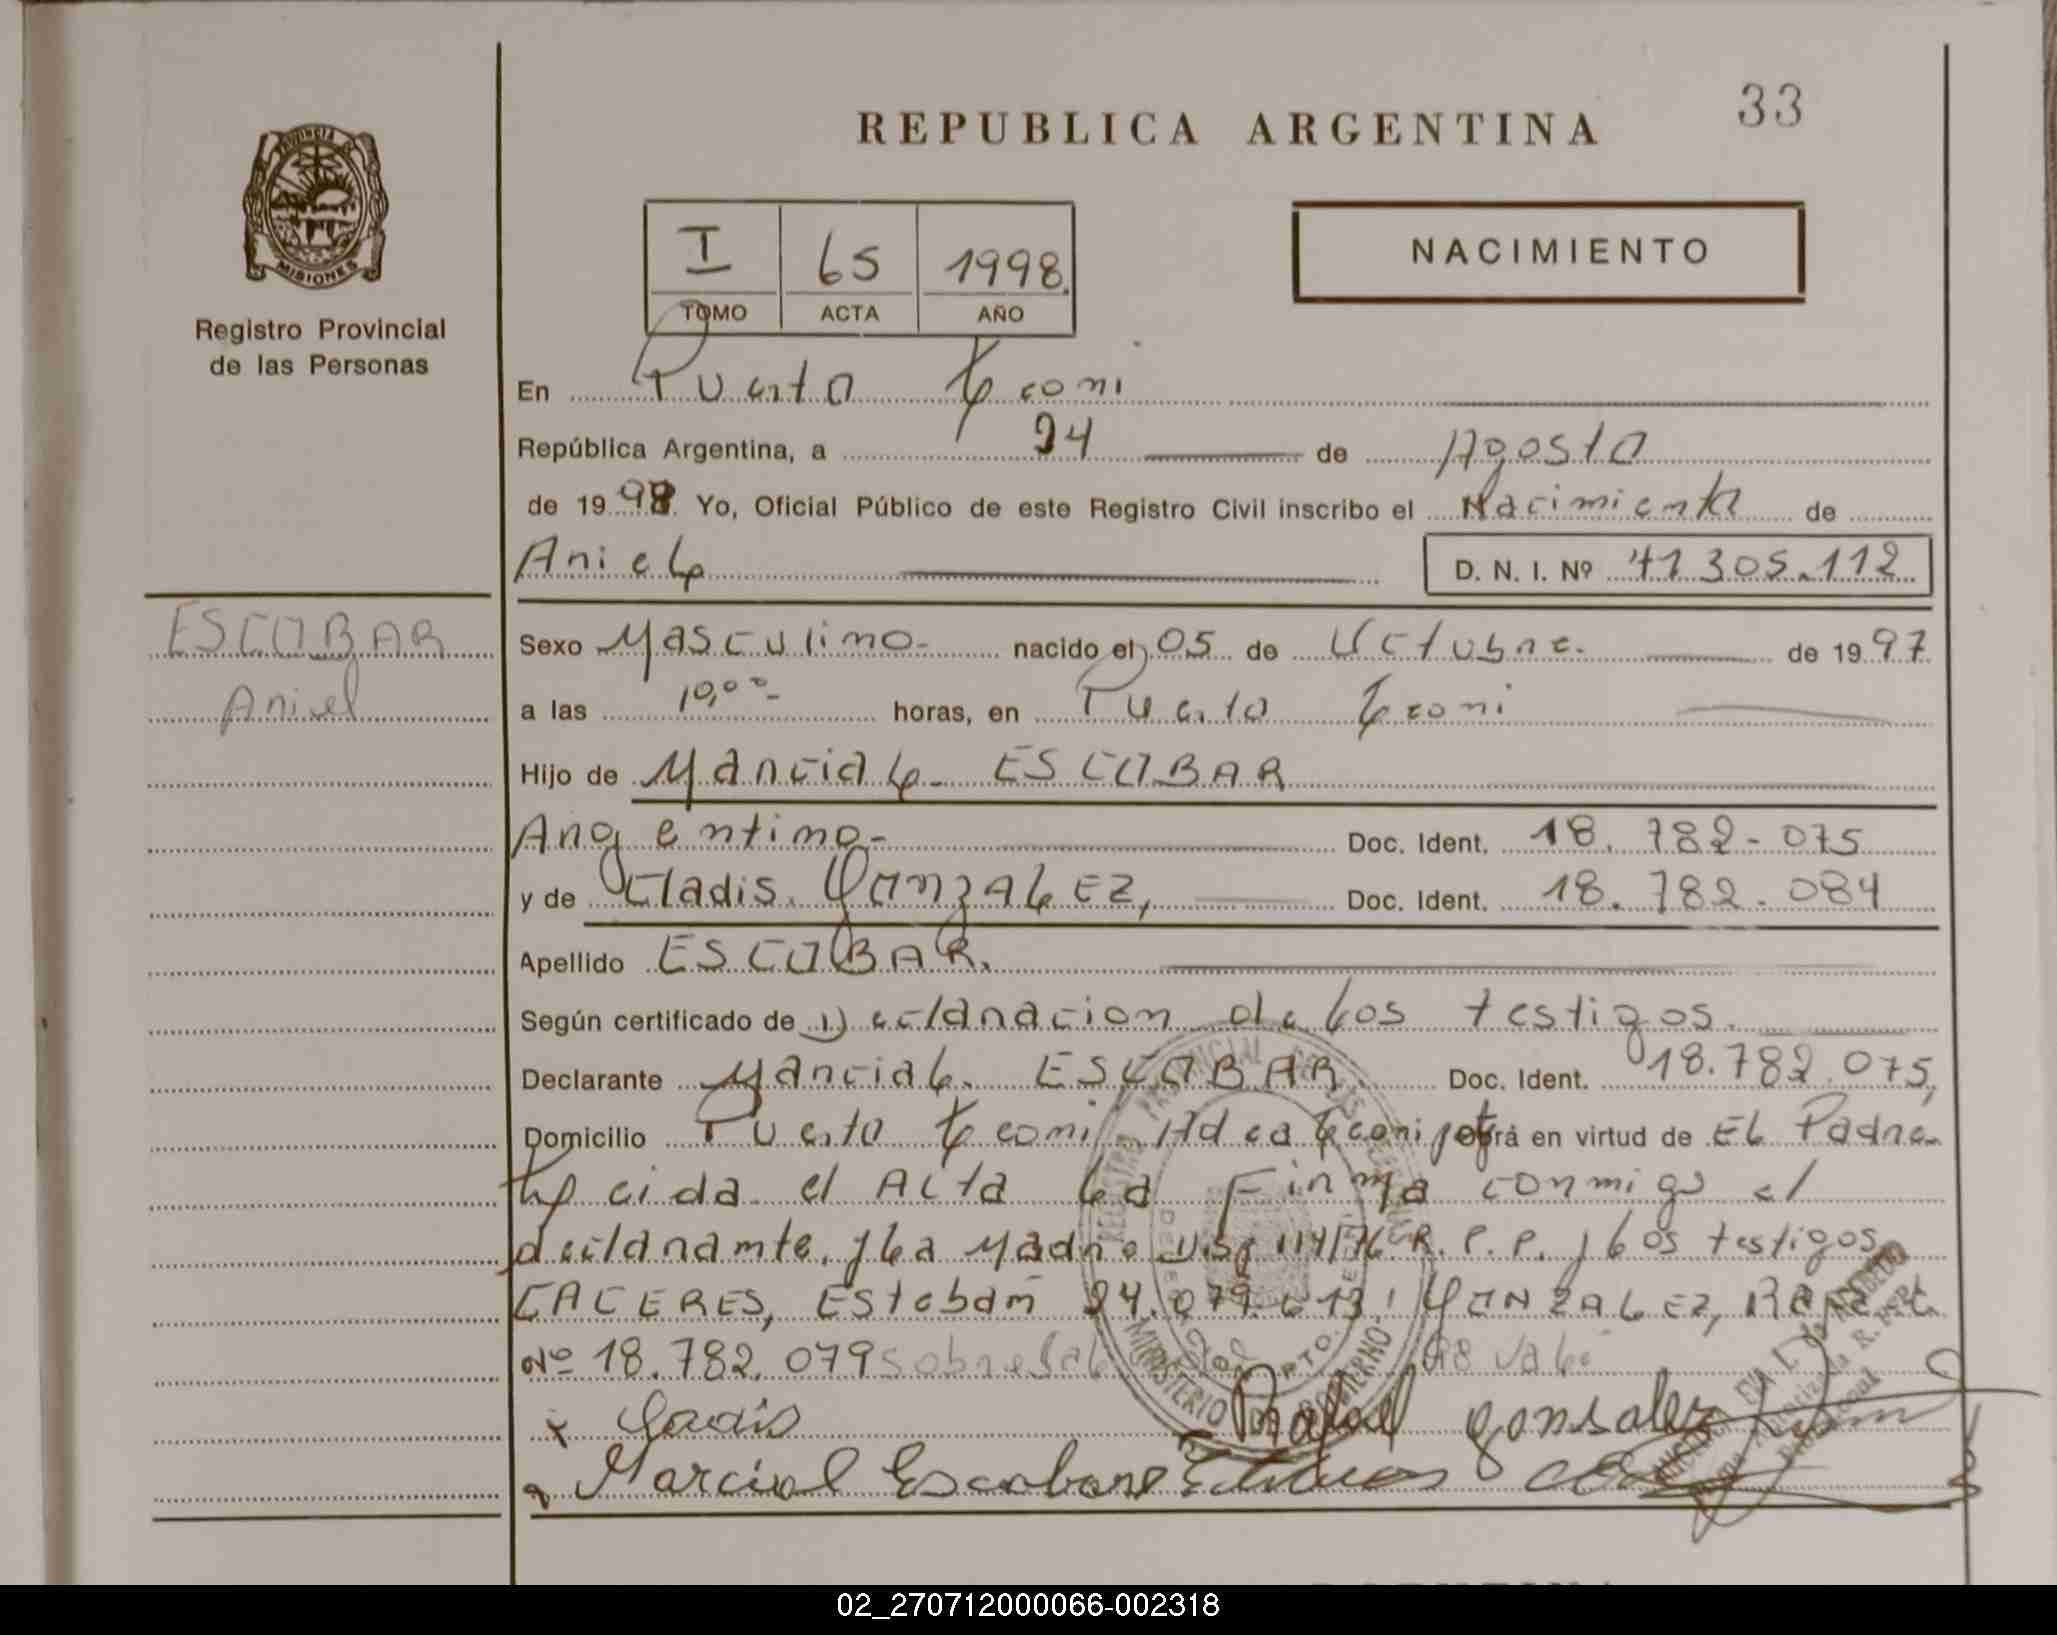 33
REPUBLICA ARGENTINA
PROVINCIA DE
MISIONES
Registro Provincial
de las Personas
I 65 1998.
TOMO ACTA AÑO
NACIMIENTO
En Puerto Leoni
República Argentina, a 24 de Agosto
de 1998. Yo, Oficial Público de este Registro Civil inscribo el Nacimiento de
Aniel D. N. I. Nº 41.305.112
ESCOBAR
Aniel
Sexo Masculino- nacido el 05 de Octubre. de 1997
a las 10,00- horas, en Puerto Leoni
Hijo de Marcial- ESCOBAR
Argentino- Doc. Ident. 18.782-075
y de Gladis. GONZALEZ, Doc. Ident. 18.782.084
Apellido ESCOBAR.
Según certificado de Declaracion de los testigos.
Declarante Marcial. ESCOBAR. Doc. Ident. 18.782.075,
Domicilio Puerto Leoni Aldea Leoni obrá en virtud de El Padre-
Leida el Acta la Firma conmigo el
declarante, y la Madre Disp 114/76 R.P.P. y los testigos
CACERES, Esteban 24.079.613 GONZALEZ, Rafael
Nº 18.782.079 sobre 98 vale
x Gladis Rafael gonsalez
Marcial Escobar
REGISTRO PROVINCIAL DE LAS PERSONAS
MINISTERIO DE GOBIERNO
02_270712000066-002318